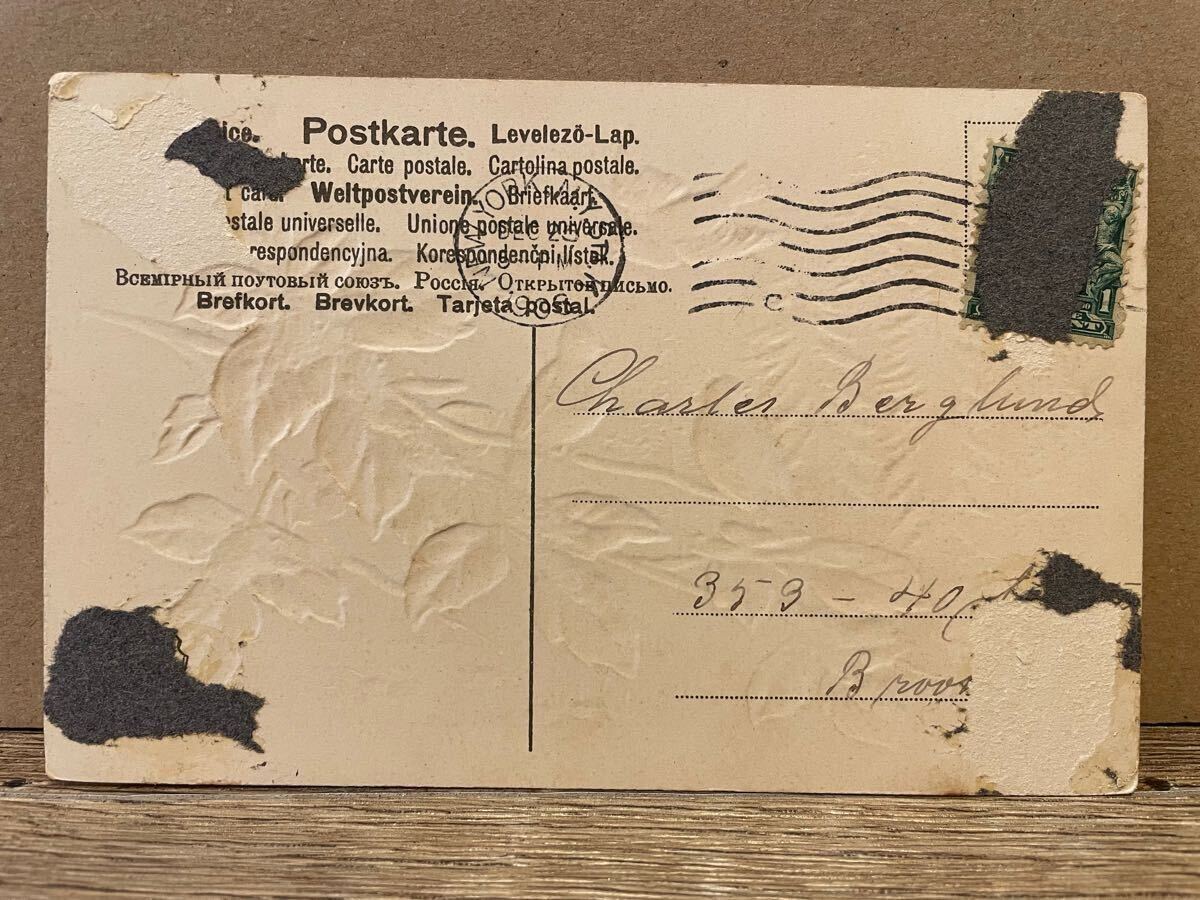 Postkarte. Levelező-Lap.
Carte postale. Cartolina postale.
Weltpostverein. Briefkaart.
stale universelle. Unione postale universale.
respondencyjna. Korespondenčni listek.
Всемірный поутовый союзъ. Россія. Открытое письмо.
Brefkort. Brevkort. Tarjeta postal.
NEW YORK, N.Y. STA.
DEC
1908
C
1
Charles Berglund
353 - 40
Broo